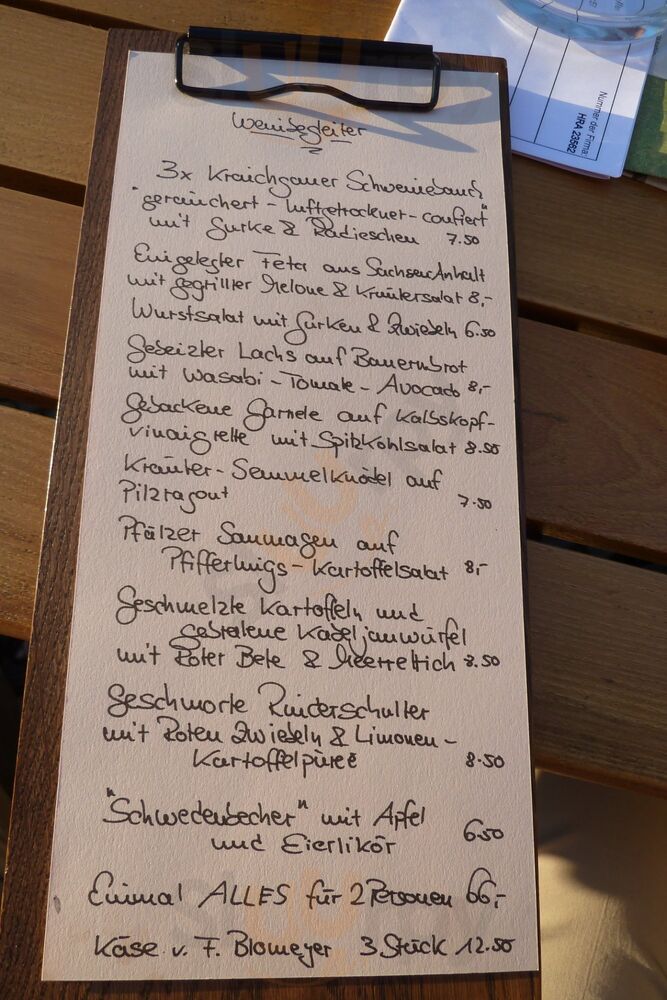 Weinbegleiter
3x Kraichgauer Schweinebauch
"geräuchert - luftgetrocknet - confiert"
mit Gurke & Radieschen 7.50
Eingelegter Feta aus Sachsen Anhalt
mit gegrillter Melone & Kräutersalat 8,-
Wurstsalat mit Gurken & Zwiebeln 6.50
Gebeizter Lachs auf Bauernbrot
mit Wasabi - Tomate - Avocado 8,-
Gebackene Garnele auf Kalbskopf-
vinaigrette mit Spitzkohlsalat 8.50
Kräuter-Semmelknödel auf
Pilzragout 7.50
Pfälzer Saumagen auf
Pfifferlings-Kartoffelsalat 8,-
Geschmelzte Kartoffeln und
gebratene Kabeljauwürfel
mit Roter Bete & Meerrettich 8.50
Geschmorte Rinderschulter
mit Roten Zwiebeln & Limonen-
Kartoffelpüree 8.50
"Schwedenbecher" mit Apfel
und Eierlikör 6.50
Einmal ALLES für 2 Personen 66,-
Käse v. F. Blomeyer 3 Stück 12.50
Nummer der Firma:
HRA 23582